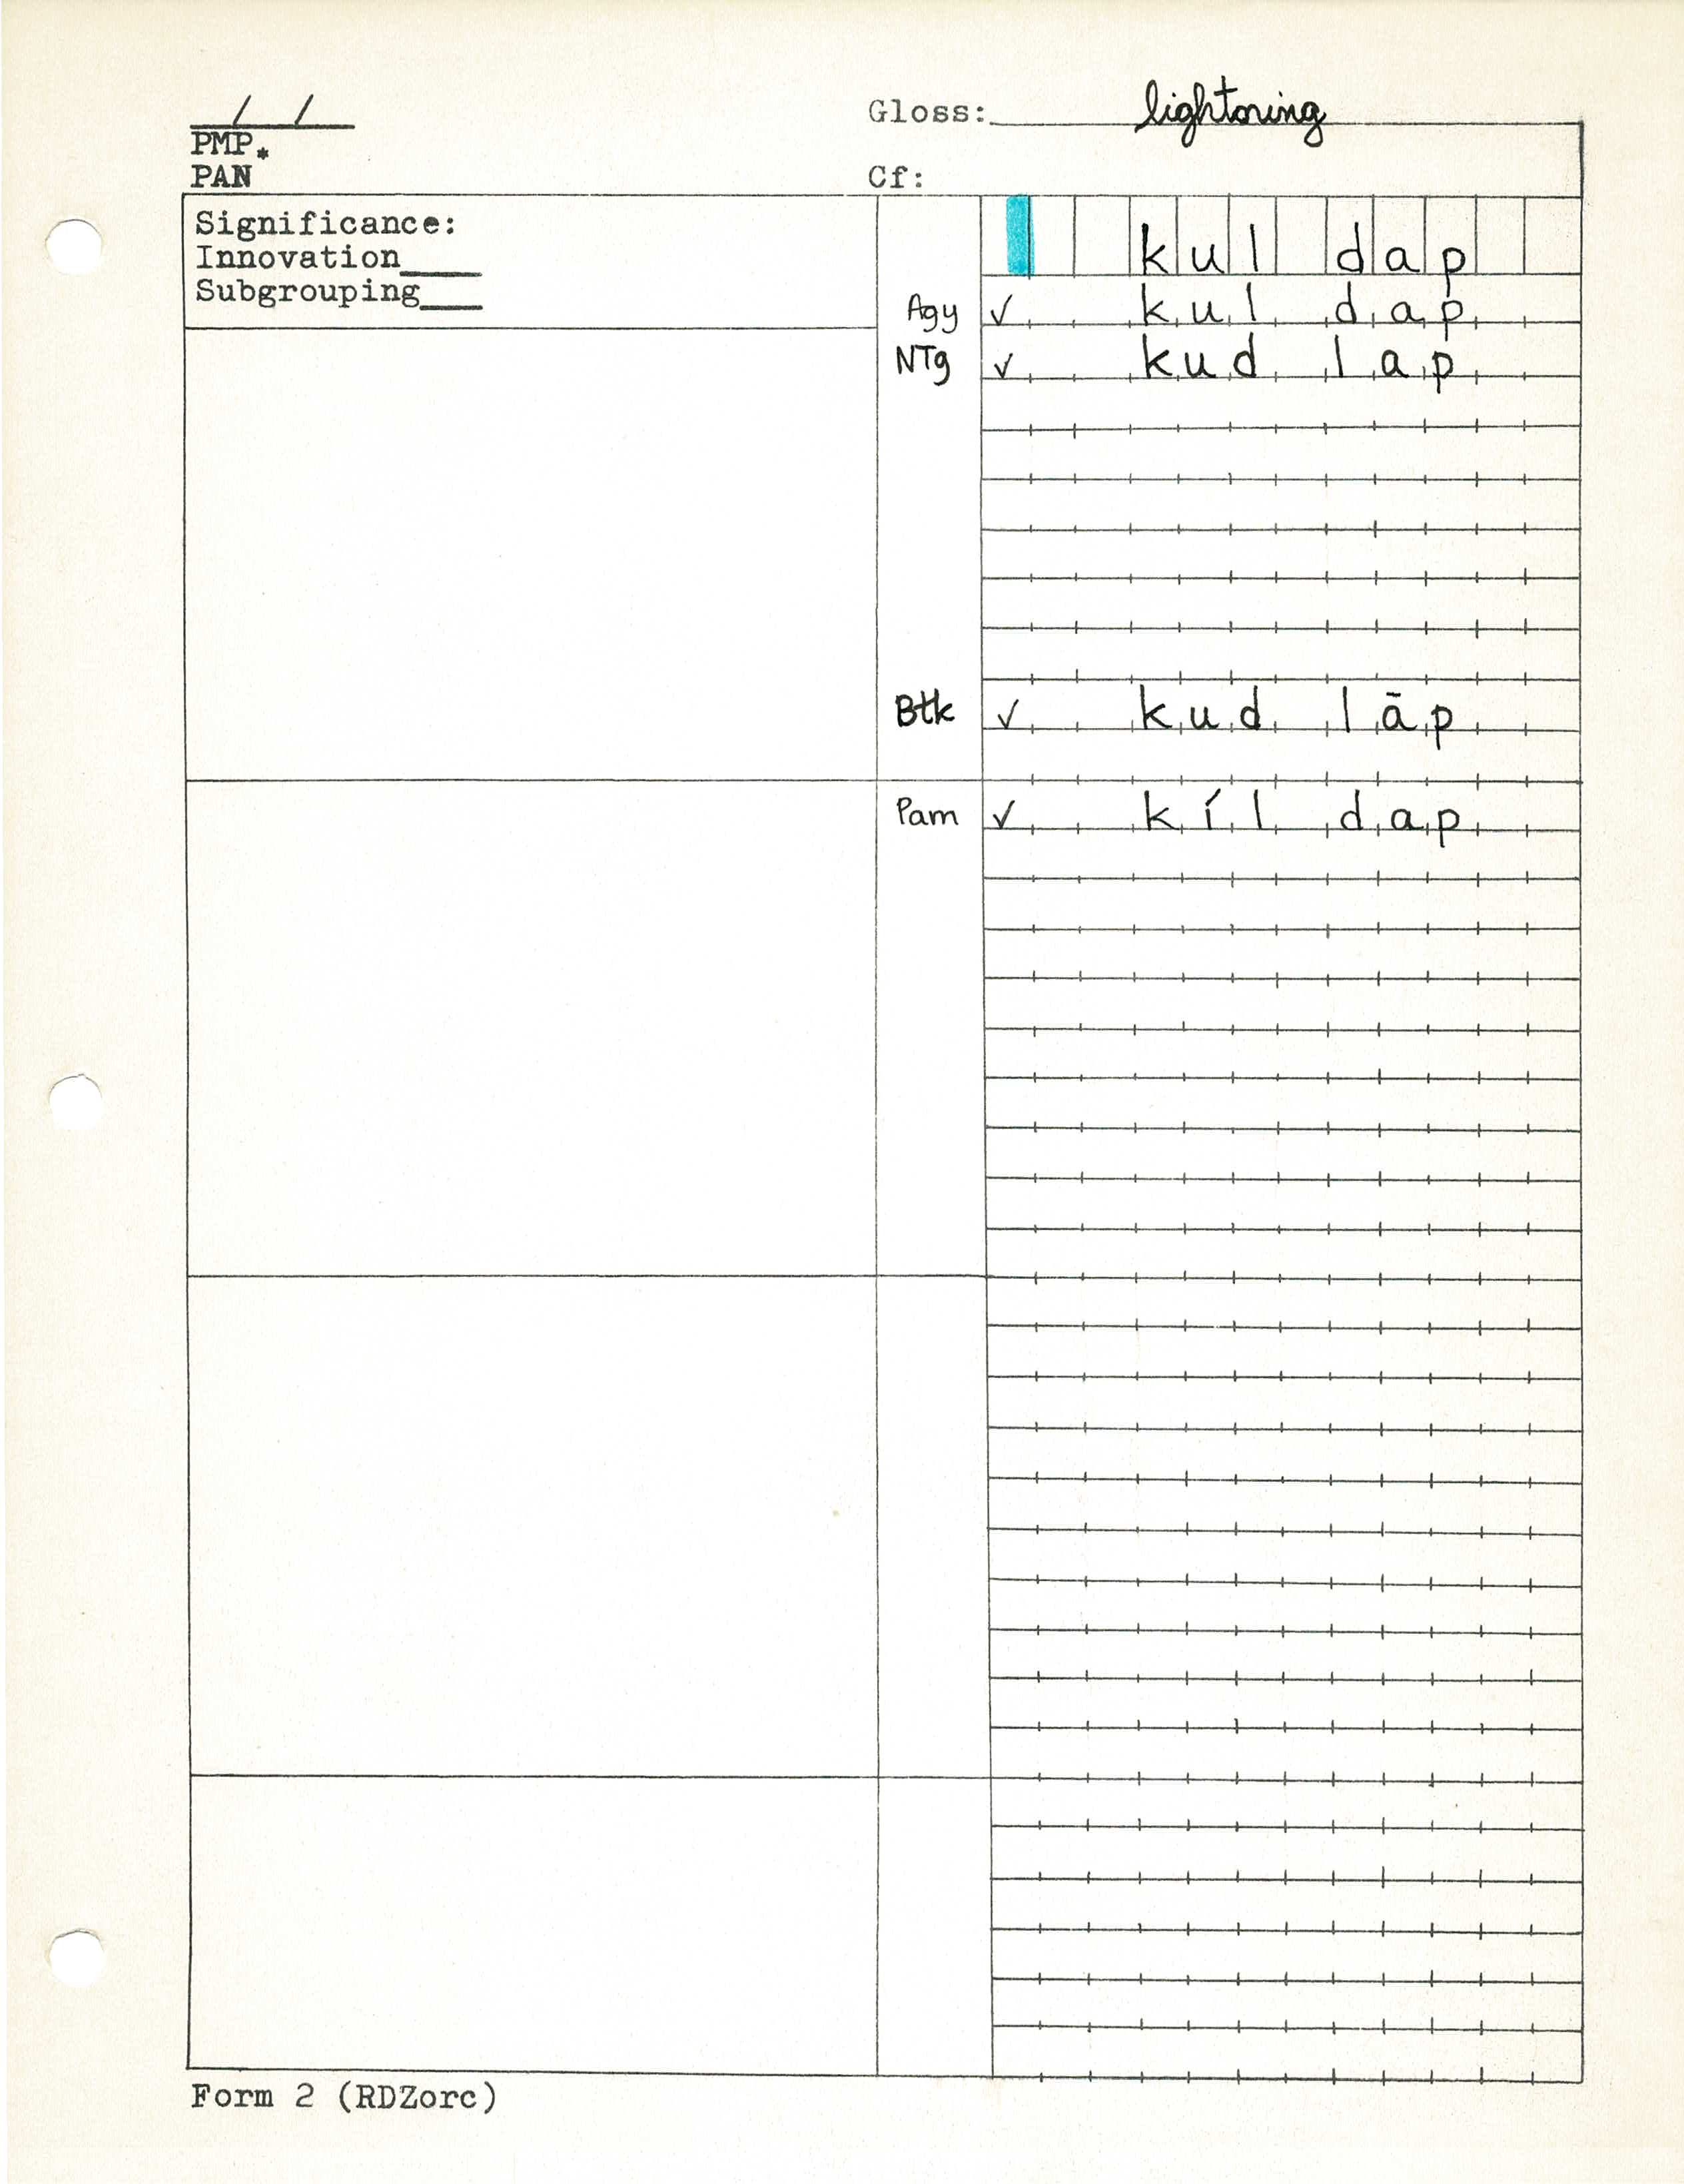 / /
Gloss: lightning
PMP*
PAN
Cf:
Significance:
Innovation____
Subgrouping___
kul dap
Agy ✓ kul dap
NTg ✓ kud lap
Btk ✓ kud lāp
Pam ✓ kíl dap
Form 2 (RDZorc)